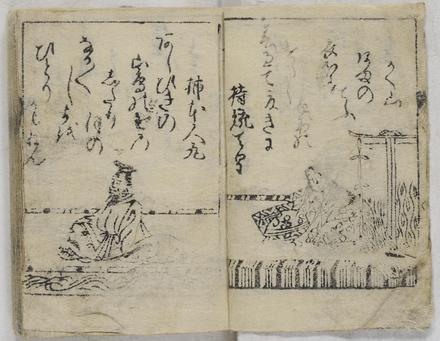 持統天皇
春過て夏きに
けらし
白妙の
衣ほすてふ
あまの
かく山
柿本人丸
あしひきの
山鳥の尾の
したり
尾の
なか〳〵
し夜を
ひとり
かもねん